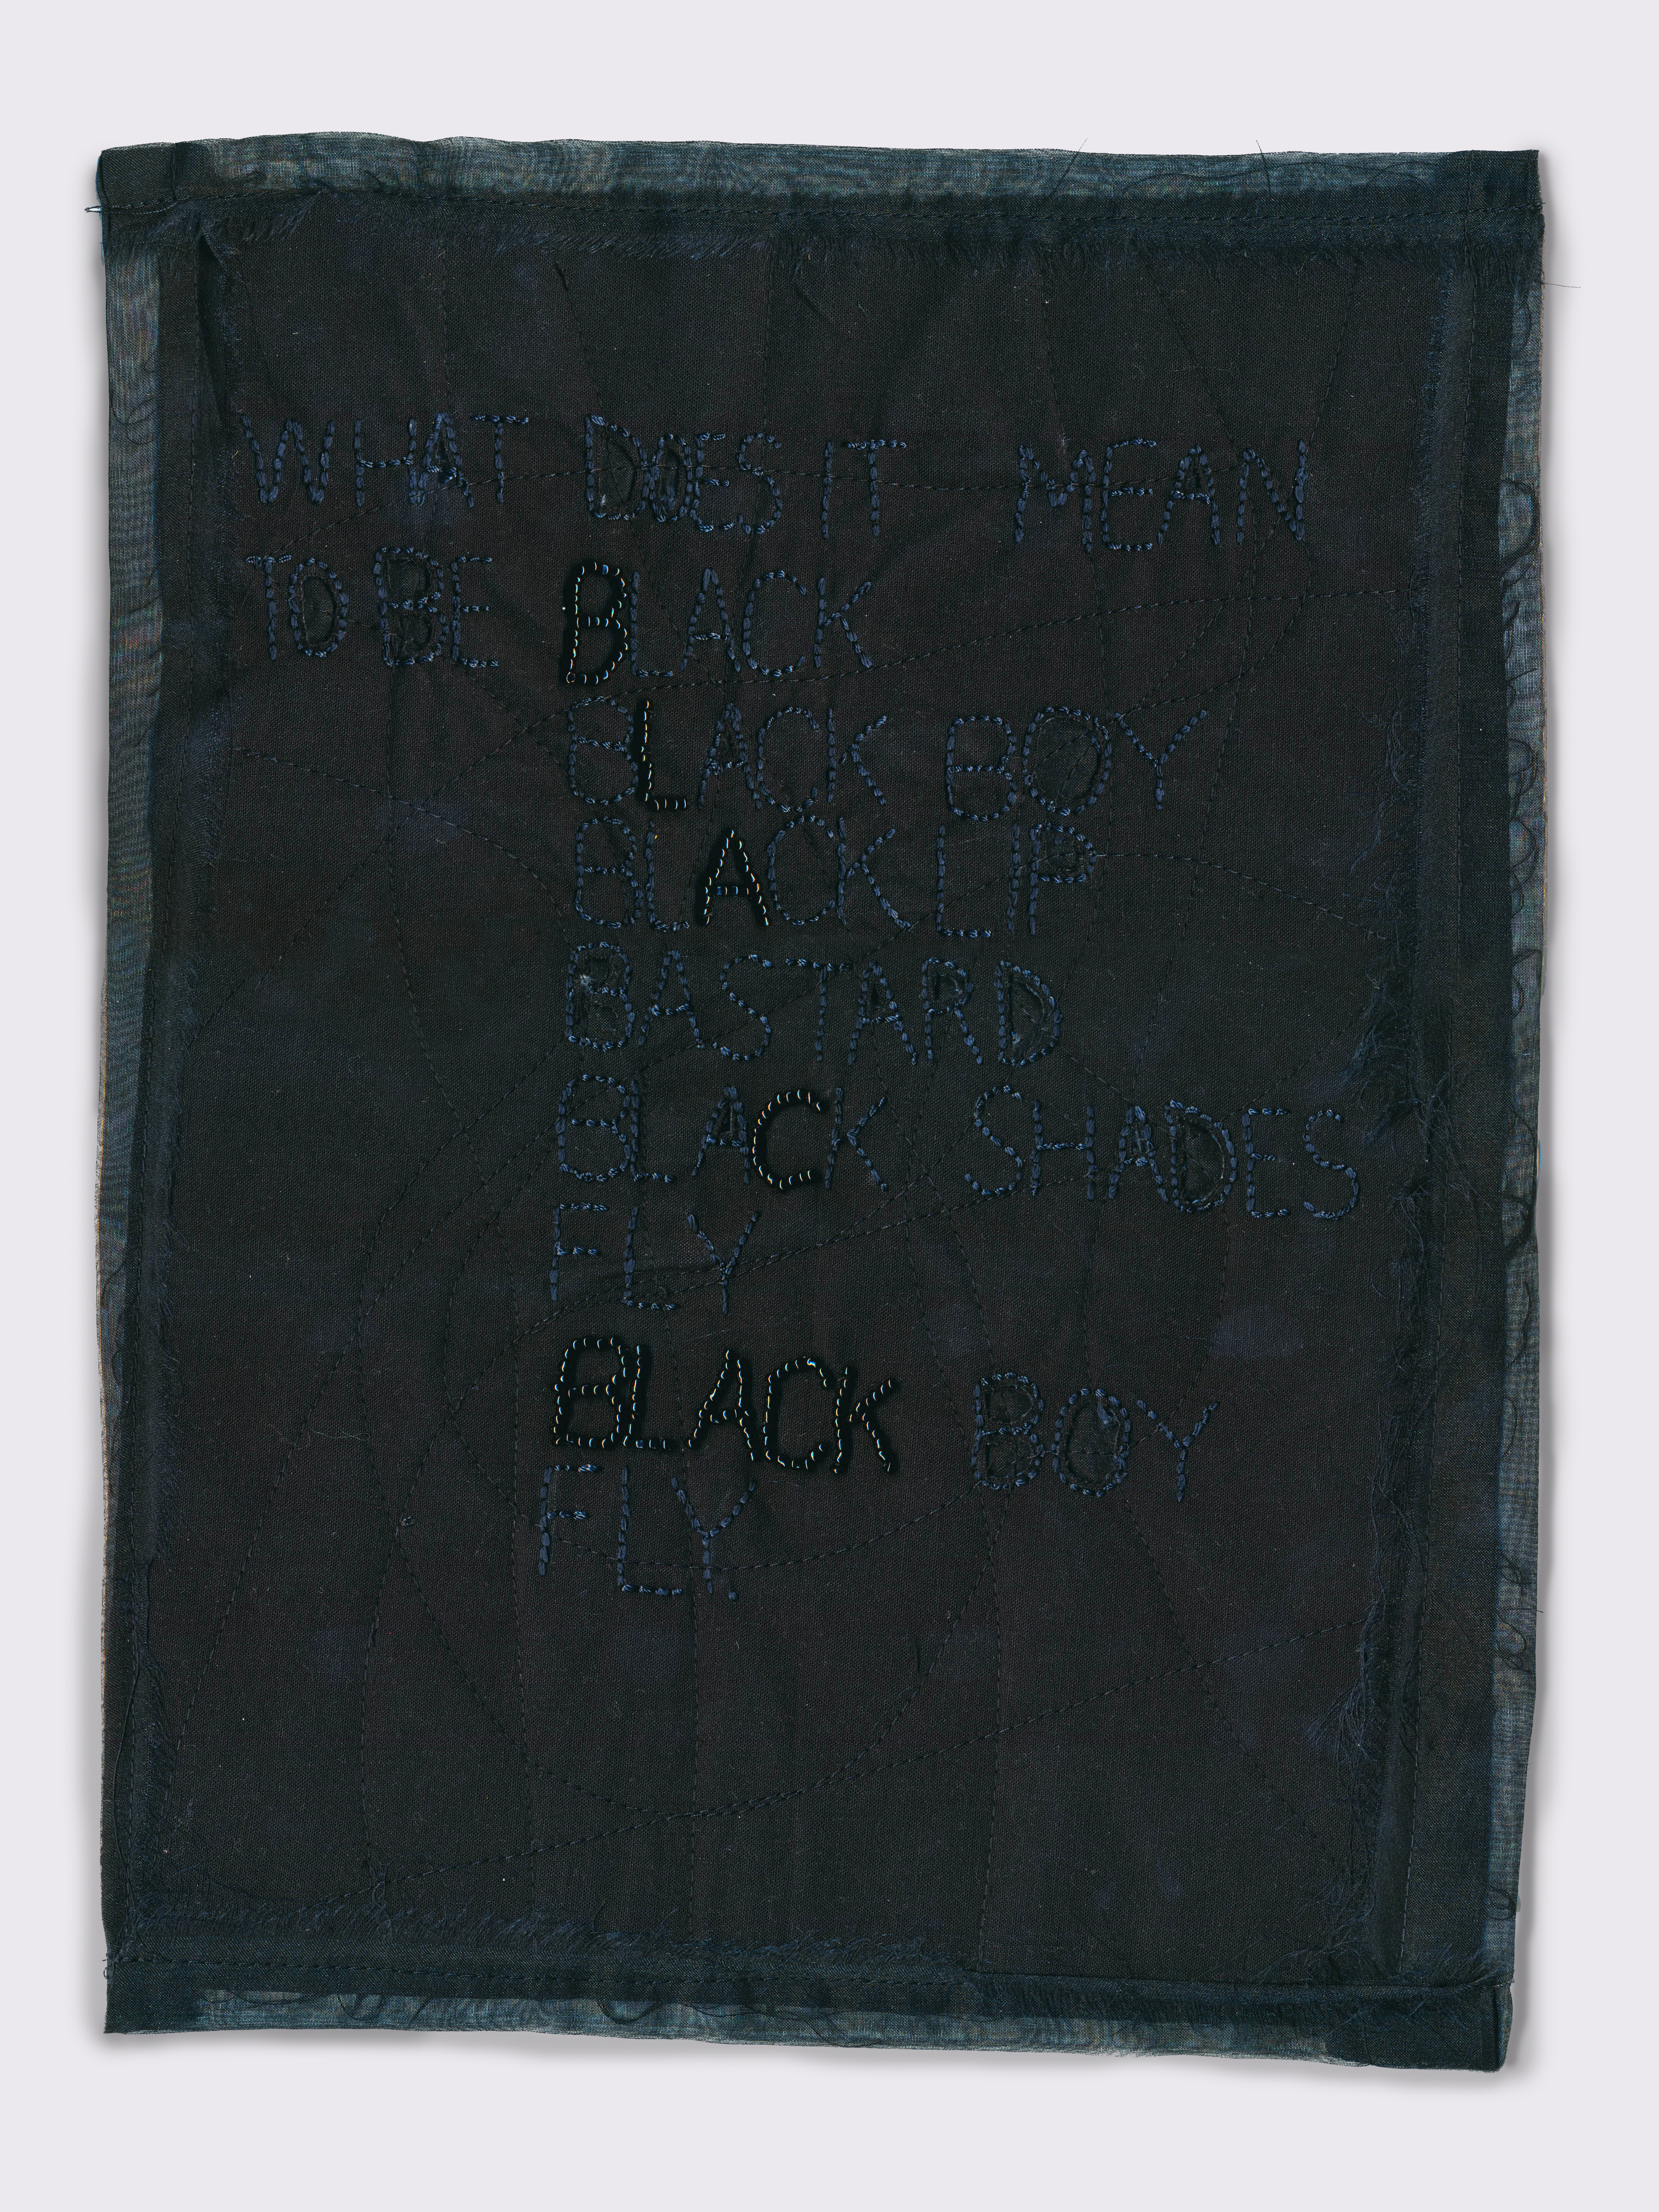 WHAT DOES IT MEAN
TO BE BLACK
BLACK BOY
BLACK LIP
BASTARD
BLACK SHADES
FLY
BLACK BOY
FLY.